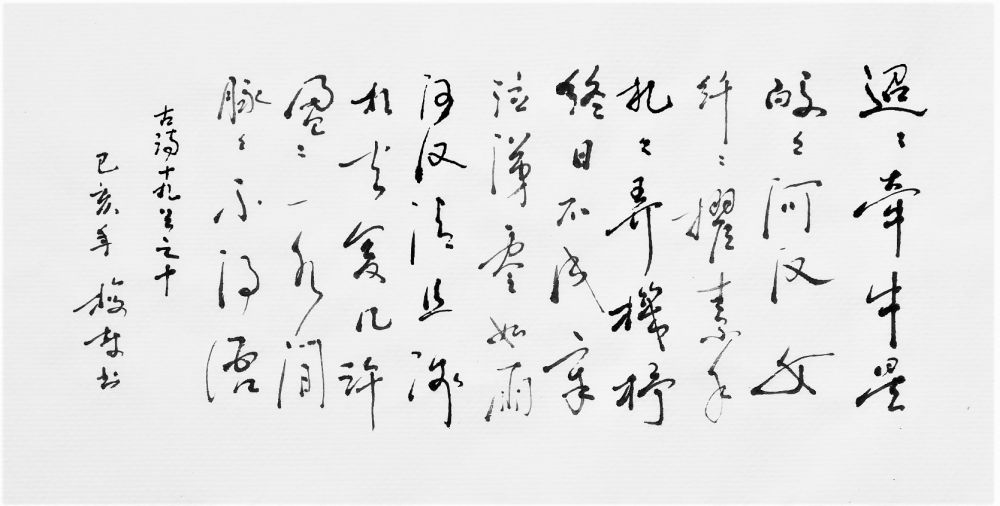 迢〻牵牛星
皎〻河汉女
纤〻擢素手
札〻弄機杼
终日不成章
泣涕零如雨
河汉清且浅
相去复几许
盈〻一水间
脉〻不得语
古诗十九首之十
己亥年 书